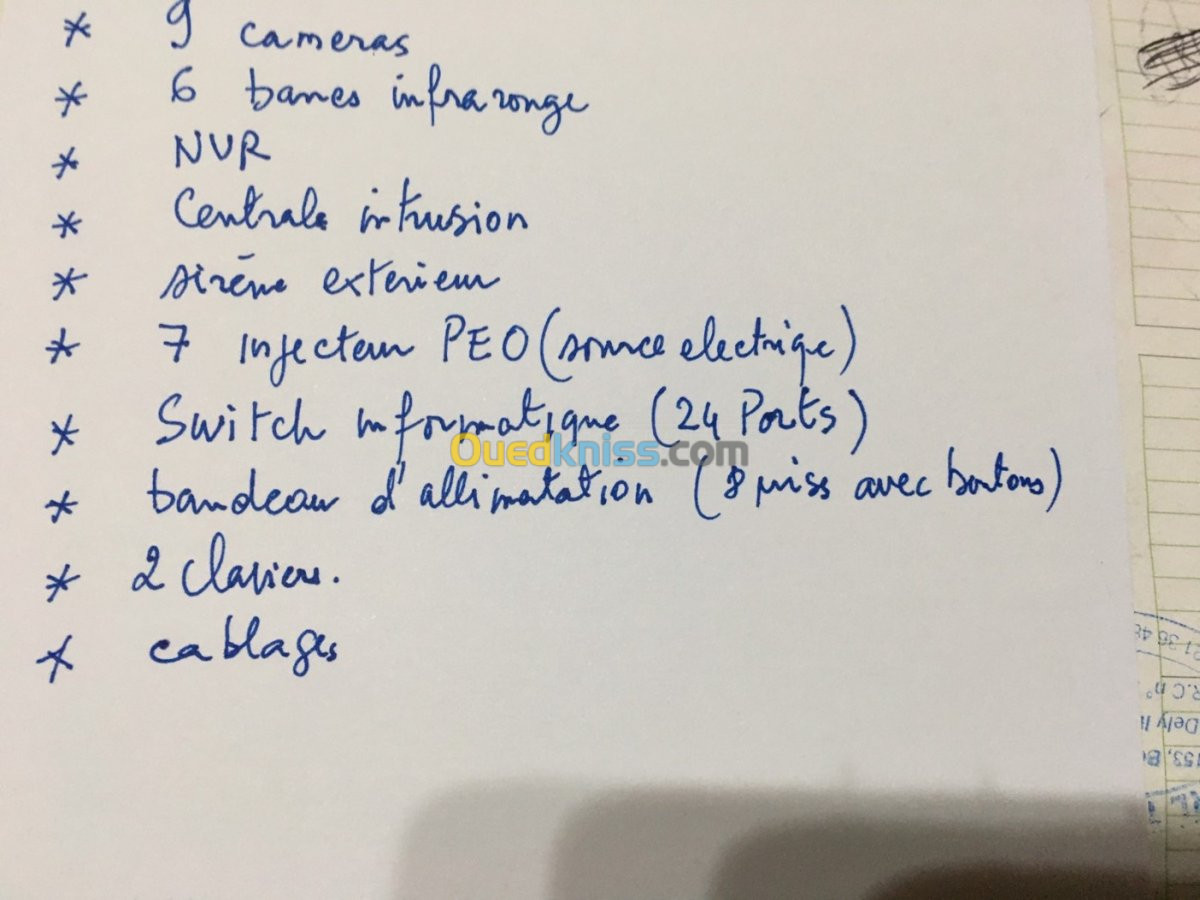 * 9 cameras
* 6 barres infrarouge
* NVR
* Centrale intrusion
* sirène exterieur
* 7 injecteur PEO (source electrique)
* Switch informatique (24 Ports)
Ouedkniss.com
* bandeau d'allimatation (8 priss avec boutons)
* 2 Claviers.
* cablages
21 36 48
R.C n°
Dely I
153, B